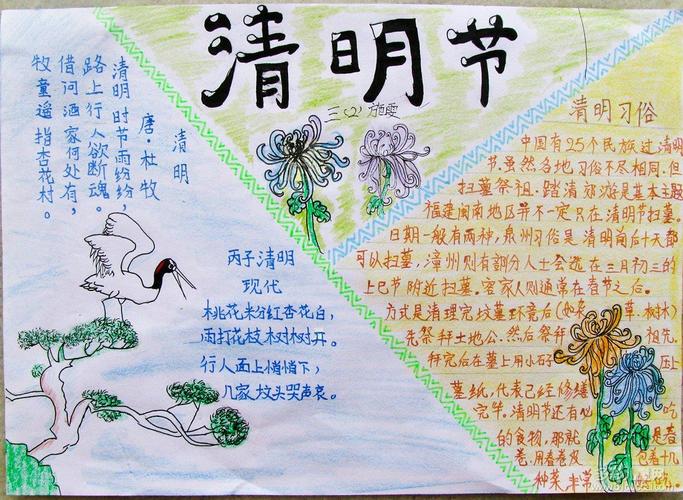 清明节
三(2)施
清明
唐·杜牧
清明时节雨纷纷,
路上行人欲断魂。
借问酒家何处有,
牧童遥指杏花村。
丙子清明
现代
桃花粉红杏花白,
雨打花枝树树开。
行人面上悄悄下,
几家坟头哭声哀。
清明习俗
中国有25个民族过清明
节.虽然各地习俗不尽相同.但
扫墓祭祖.踏清郊游是基本主题
福建闽南地区并不一定只在清明节扫墓。
日期一般有两种,泉州习俗是清明前后十天都
可以扫墓,漳州则有部分人士会选在三月初三的
上巳节附近扫墓。客家人则通常在春节之后。
方式是清理完坟墓环境后(如杂 草.树木)
先祭拜土地公.然后祭拜 祖先.
拜完后在墓上用小石子 压上
墓纸,代表已经修缮
完毕.清明节还有 吃
的食物,那就 是春
卷.用春卷皮 包着十几
种菜非常 好吃。